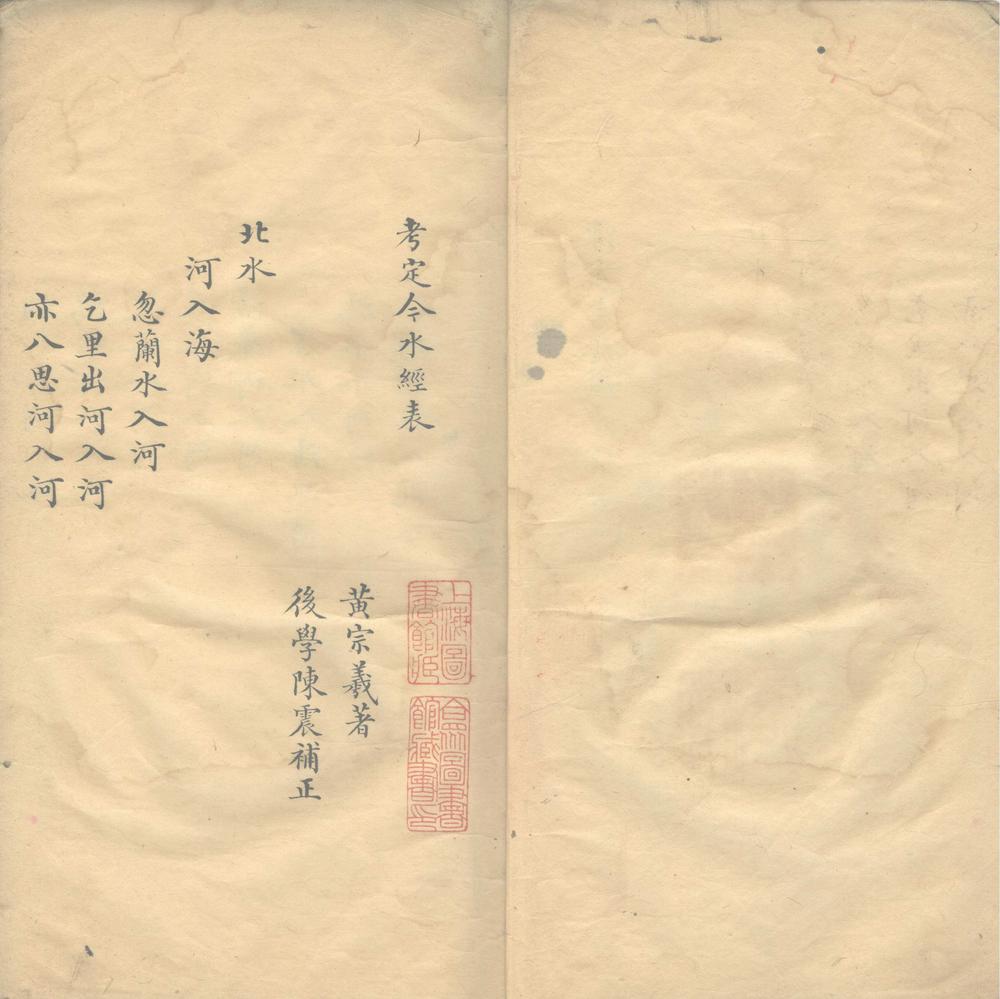 考定今水經表
上海圖
書館藏
合眾圖書
館藏書印
黃宗羲著
後學陳震補正
北水
河入海
忽蘭水入河
乞里出河入河
亦八思河入河